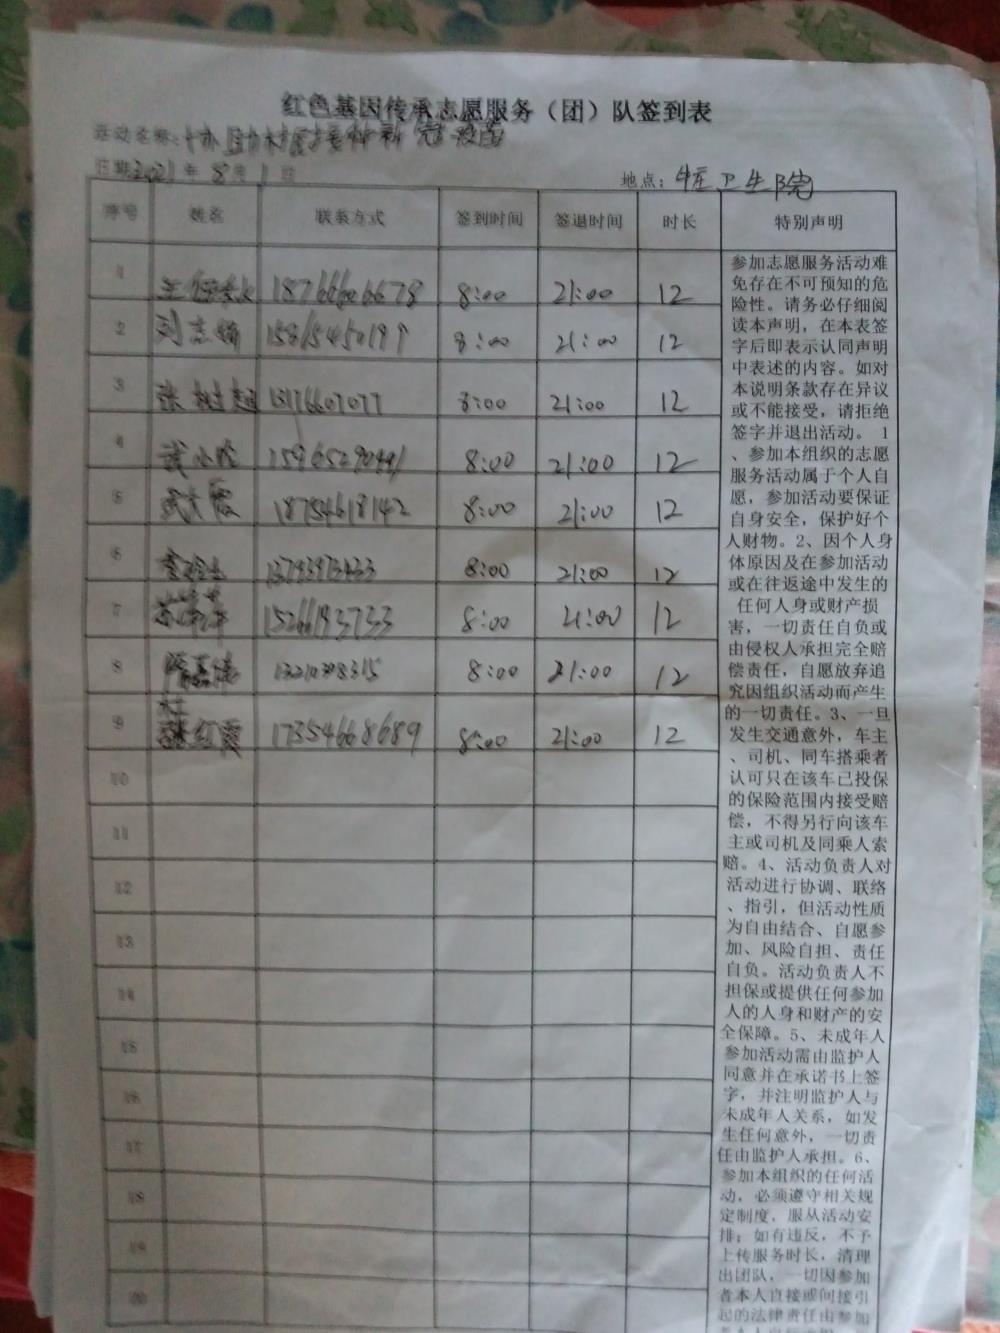 红色基因传承志愿服务（团）队签到表
活动名称：协助村居接种新冠疫苗
日期2021年8月1日 地点：卫生院
序号 姓名 联系方式 签到时间 签退时间 时长 特别声明
1 18766606678 8:00 21:00 12
2 刘志娟 15615450199 8:00 21:00 12
3 张 8:00 21:00 12
4 8:00 21:00 12
5 18754618142 8:00 21:00 12
6 8:00 21:00 12
7 15266193733 8:00 21:00 12
8 8:00 21:00 12
9 红霞 17354668689 8:00 21:00 12
10
11
12
13
14
15
16
17
18
19
20
参加志愿服务活动难
免存在不可预知的危
险性。请务必仔细阅
读本声明，在本表签
字后即表示认同声明
中表述的内容。如对
本说明条款存在异议
或不能接受，请拒绝
签字并退出活动。 1
、参加本组织的志愿
服务活动属于个人自
愿，参加活动要保证
自身安全，保护好个
人财物。2、因个人身
体原因及在参加活动
或在往返途中发生的
任何人身或财产损
害，一切责任自负或
由侵权人承担完全赔
偿责任，自愿放弃追
究因组织活动而产生
的一切责任。3、一旦
发生交通意外，车主
、司机、同车搭乘者
认可只在该车已投保
的保险范围内接受赔
偿，不得另行向该车
主或司机及同乘人索
赔。4、活动负责人对
活动进行协调、联络
、指引，但活动性质
为自由结合、自愿参
加、风险自担、责任
自负。活动负责人不
担保或提供任何参加
人的人身和财产的安
全保障。5、未成年人
参加活动需由监护人
同意并在承诺书上签
字，并注明监护人与
未成年人关系，如发
生任何意外，一切责
任由监护人承担。6、
参加本组织的任何活
动，必须遵守相关规
定制度，服从活动安
排；如有违反，不予
上传服务时长，清理
出团队，一切因参加
者本人直接或间接引
起的法律责任由参加